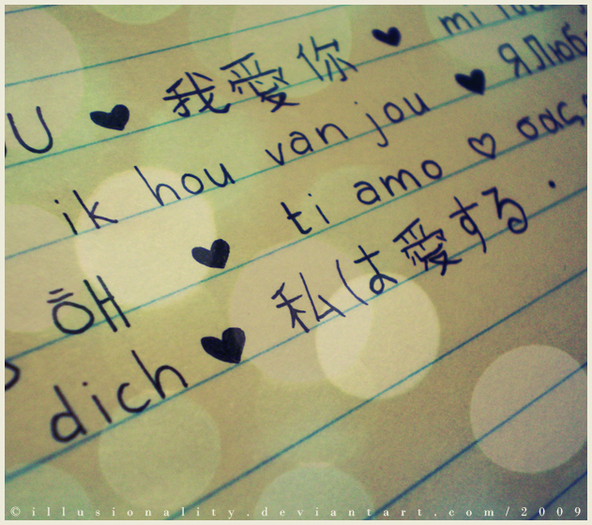 U ♥ 我愛你 ♥ mi
ik hou van jou ♥ ЯЛюб
해 ♥ ti amo ♡ σας
dich ♥ 私は愛する.
©illusionality.deviantart.com/2009